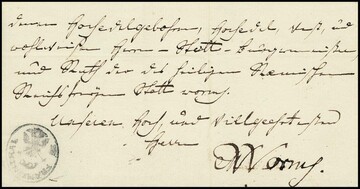 denen Hochedelgebohrn, Hochedel, Vest, und
wohlweisen Herrn Statt-Burgermeister
und Rath der des heiligen Römischen
Reichsfreyen Statt worms.
Unseren Hoch, und Villgeehrtesten
Herrn
Worms.